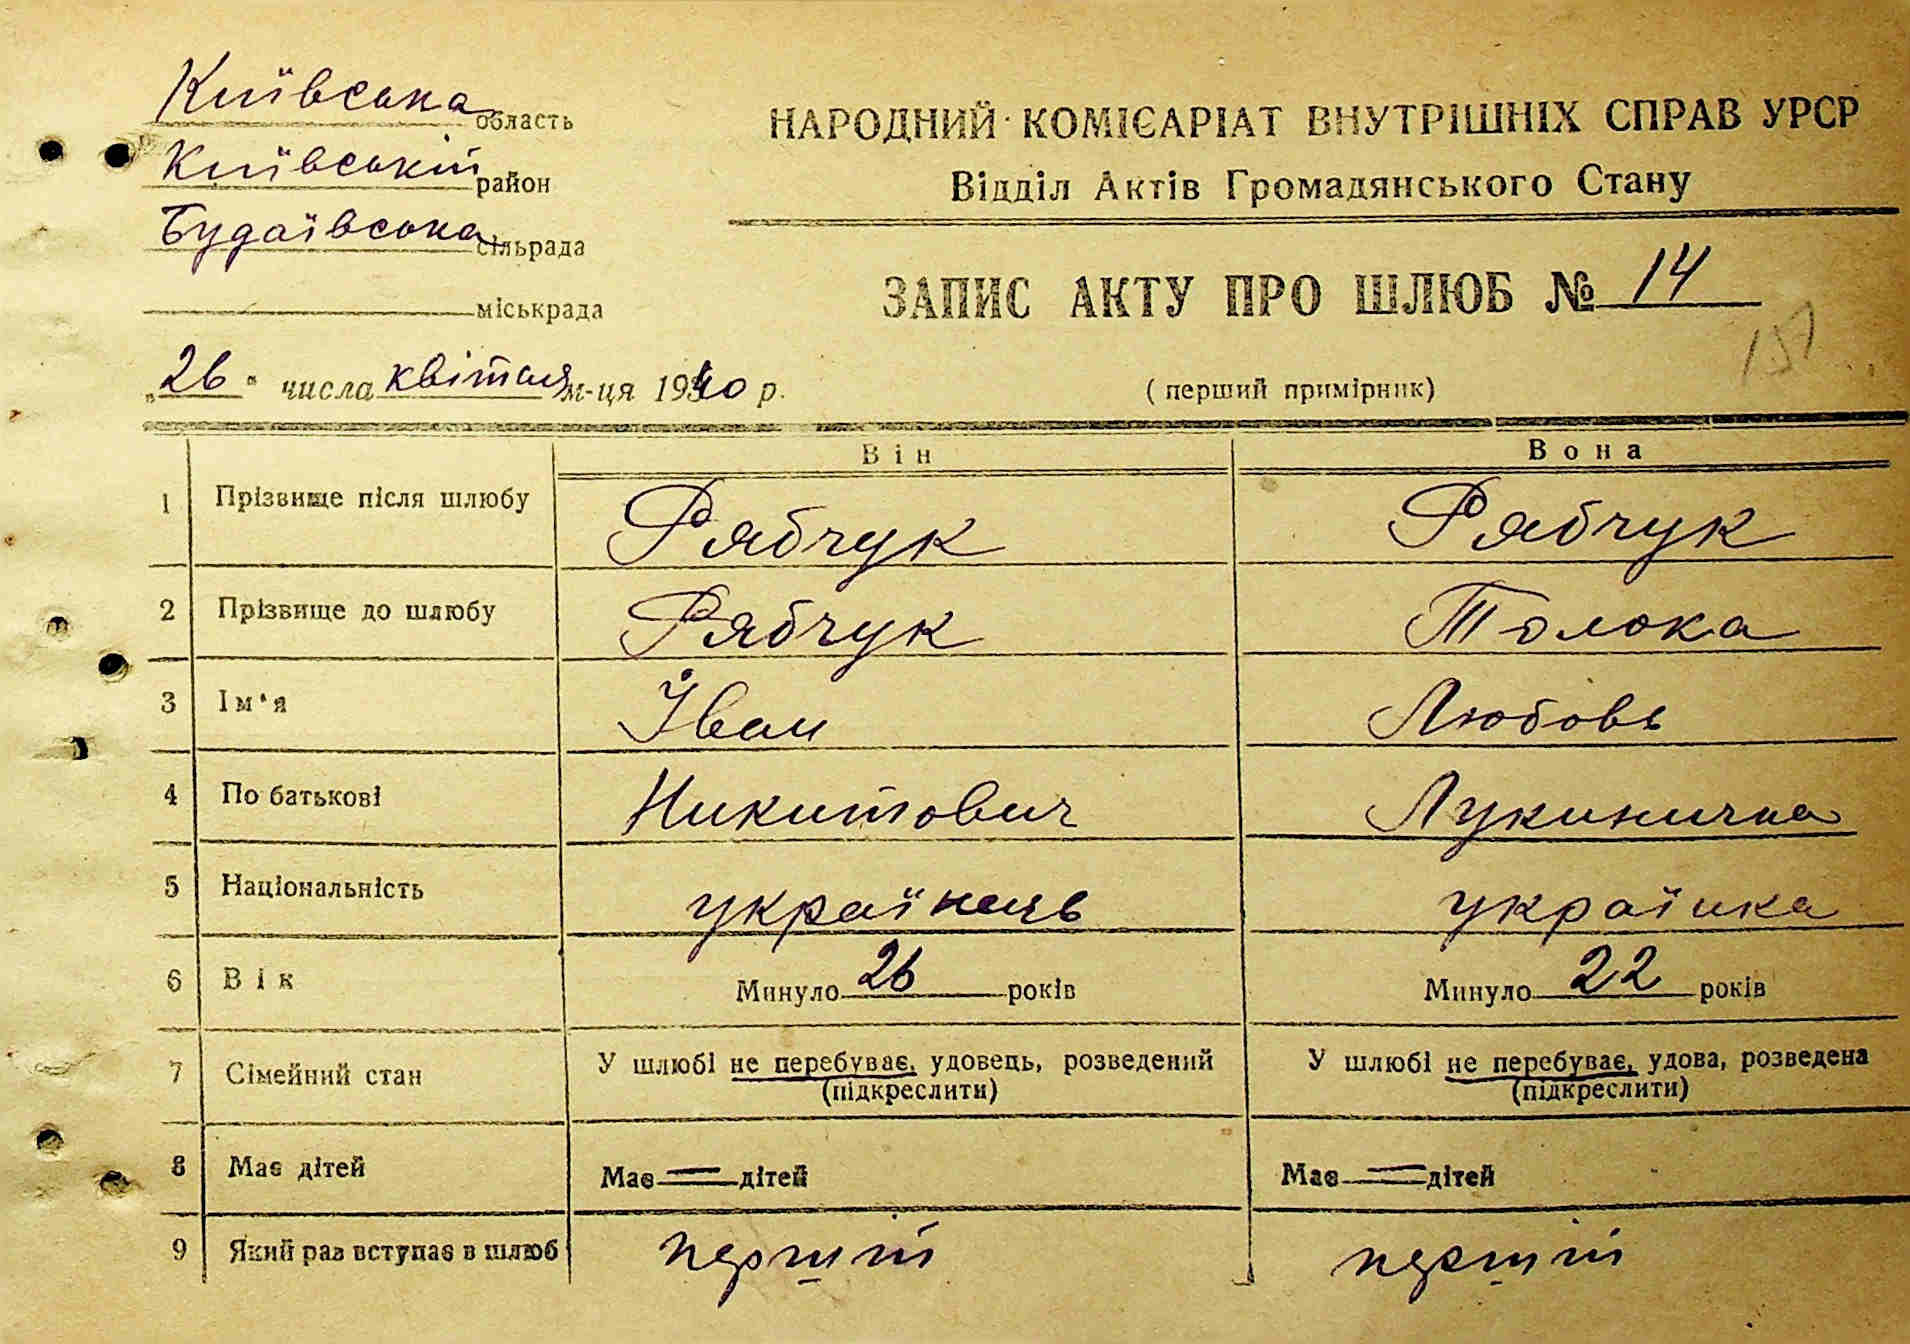 Київська область
Київський район
Будаївська сільрада
міськрада
НАРОДНИЙ КОМІСАРІАТ ВНУТРІШНІХ СПРАВ УРСР
Відділ Актів Громадянського Стану
ЗАПИС АКТУ ПРО ШЛЮБ № 14
157
„26" числа квітня м-ця 1940 р.
(перший примірник)
Він Вона
1 Прізвище після шлюбу Рябчук Рябчук
2 Прізвище до шлюбу Рябчук Толока
3 Ім'я Іван Любовь
4 По батькові Никитович Лукинична
5 Національність українець українка
6 Вік Минуло 26 років Минуло 22 років
7 Сімейний стан У шлюбі не перебуває, удовець, розведений У шлюбі не перебуває, удова, розведена
(підкреслити) (підкреслити)
8 Має дітей Має — дітей Має — дітей
9 Який раз вступає в шлюб перший перший